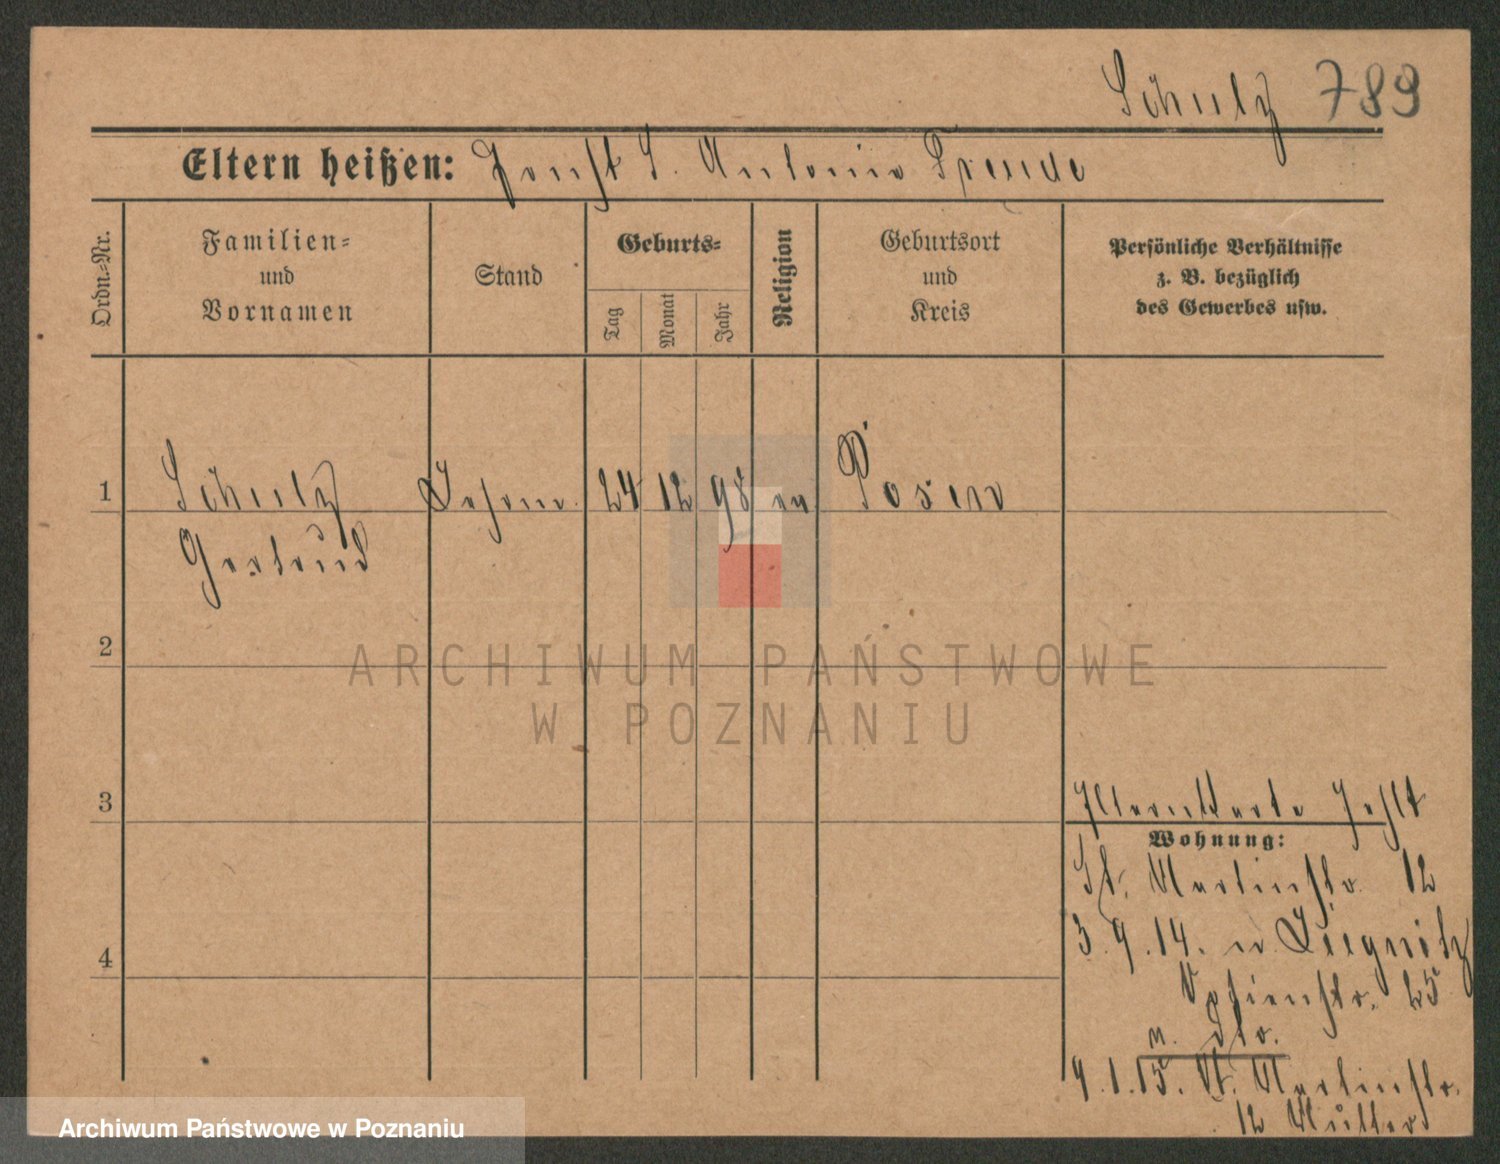 Schulz 789
Eltern heißen: S. Antonie
Ordn.-Nr.
Familien-
und
Vornamen
Stand
Geburts-
Tag
Monat
Jahr
Religion
Geburtsort
und
Kreis
Persönliche Verhältnisse
z. B. bezüglich
des Gewerbes usw.
1 Schulz 24 12 98 ev Posen
Gertrud
2
3
4
Elternkarte fehlt
Wohnung:
St. Martinstr. 12
3.9.14. n Liegnitz
Sofienstr. 25
v. dto.
9.1.15. St. Martinstr.
12 Mutter
ARCHIWUM PAŃSTWOWE
W POZNANIU
Archiwum Państwowe w Poznaniu